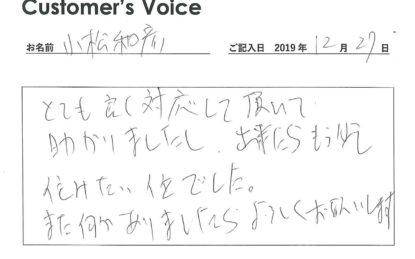 Customer's Voice
お名前 小松和彦 ご記入日 2019年 12月 27日
とても良く対応して頂いて
助かりましたし、出来たらもう少し
住みたい位でした。
また何かありましたらよろしくお願いします